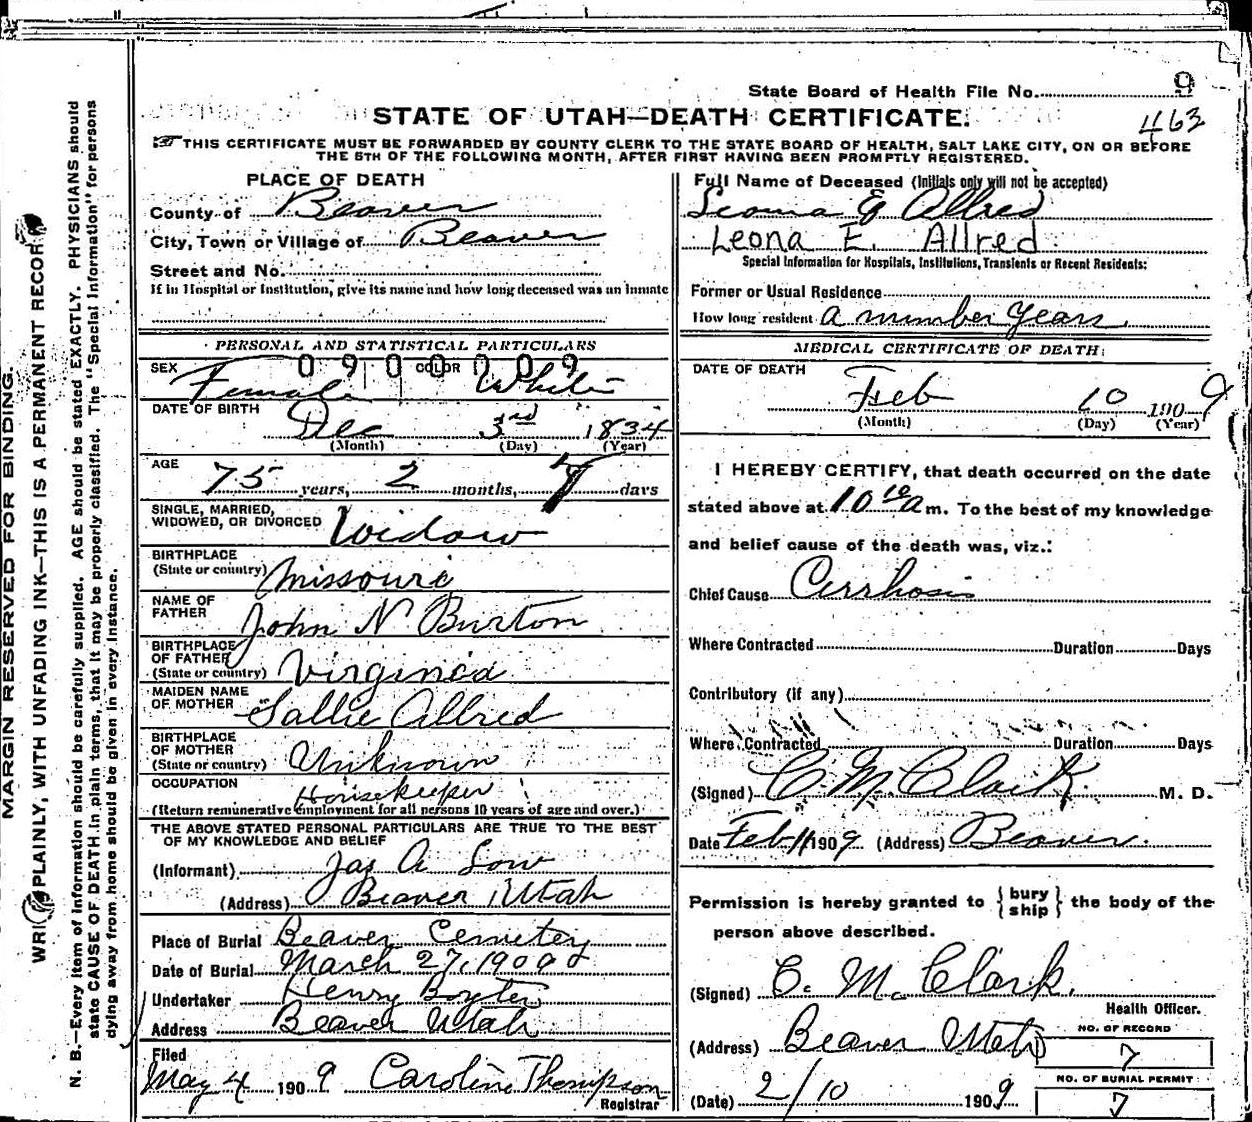 State Board of Health File No. 9
STATE OF UTAH—DEATH CERTIFICATE.
463
THIS CERTIFICATE MUST BE FORWARDED BY COUNTY CLERK TO THE STATE BOARD OF HEALTH, SALT LAKE CITY, ON OR BEFORE
THE 5TH OF THE FOLLOWING MONTH, AFTER FIRST HAVING BEEN PROMPTLY REGISTERED.
MARGIN RESERVED FOR BINDING.
PLAINLY, WITH UNFADING INK—THIS IS A PERMANENT RECORD
N. B.—Every item of information should be carefully supplied. AGE should be stated EXACTLY. PHYSICIANS should
state CAUSE OF DEATH in plain terms, that it may be properly classified. The "Special Information" for persons
dying away from home should be given in every instance.
PLACE OF DEATH
County of Beaver
City, Town or Village of Beaver
Street and No.
If in Hospital or Institution, give its name and how long deceased was an inmate
PERSONAL AND STATISTICAL PARTICULARS
0900009
SEX Female COLOR White
DATE OF BIRTH
Dec 3rd 1834
(Month) (Day) (Year)
AGE
75 years, 2 months, 7 days
SINGLE, MARRIED,
WIDOWED, OR DIVORCED Widow
BIRTHPLACE
(State or country) Missouri
NAME OF
FATHER John N. Burton
BIRTHPLACE
OF FATHER
(State or country) Virginia
MAIDEN NAME
OF MOTHER Sallie Allred
BIRTHPLACE
OF MOTHER
(State or country) Unknown
OCCUPATION
Housekeeper
(Return remunerative employment for all persons 10 years of age and over.)
THE ABOVE STATED PERSONAL PARTICULARS ARE TRUE TO THE BEST
OF MY KNOWLEDGE AND BELIEF
(Informant) Jas A Low
(Address) Beaver Utah
Place of Burial Beaver Cemetery
Date of Burial March 27, 1909
Undertaker Henry Boyter
Address Beaver Utah
Filed
May 4 1909 Caroline Thompson
Registrar
Full Name of Deceased (Initials only will not be accepted)
Leona E Allred
Leona E. Allred
Special Information for Hospitals, Institutions, Transients or Recent Residents:
Former or Usual Residence
How long resident a number years
MEDICAL CERTIFICATE OF DEATH
DATE OF DEATH
Feb 10 1909
(Month) (Day) (Year)
I HEREBY CERTIFY, that death occurred on the date
stated above at 10 10 a m. To the best of my knowledge
and belief cause of the death was, viz.:
Chief Cause Cirrhosis
Where Contracted Duration Days
Contributory (if any)
Where Contracted Duration Days
(Signed) C. M. Clark M. D.
Date Feb 11 1909 (Address) Beaver.
Permission is hereby granted to {bury ship} the body of the
person above described.
(Signed) C. M. Clark.
Health Officer.
(Address) Beaver Utah
NO. OF RECORD
7
NO. OF BURIAL PERMIT
7
(Date) 2/10 1909